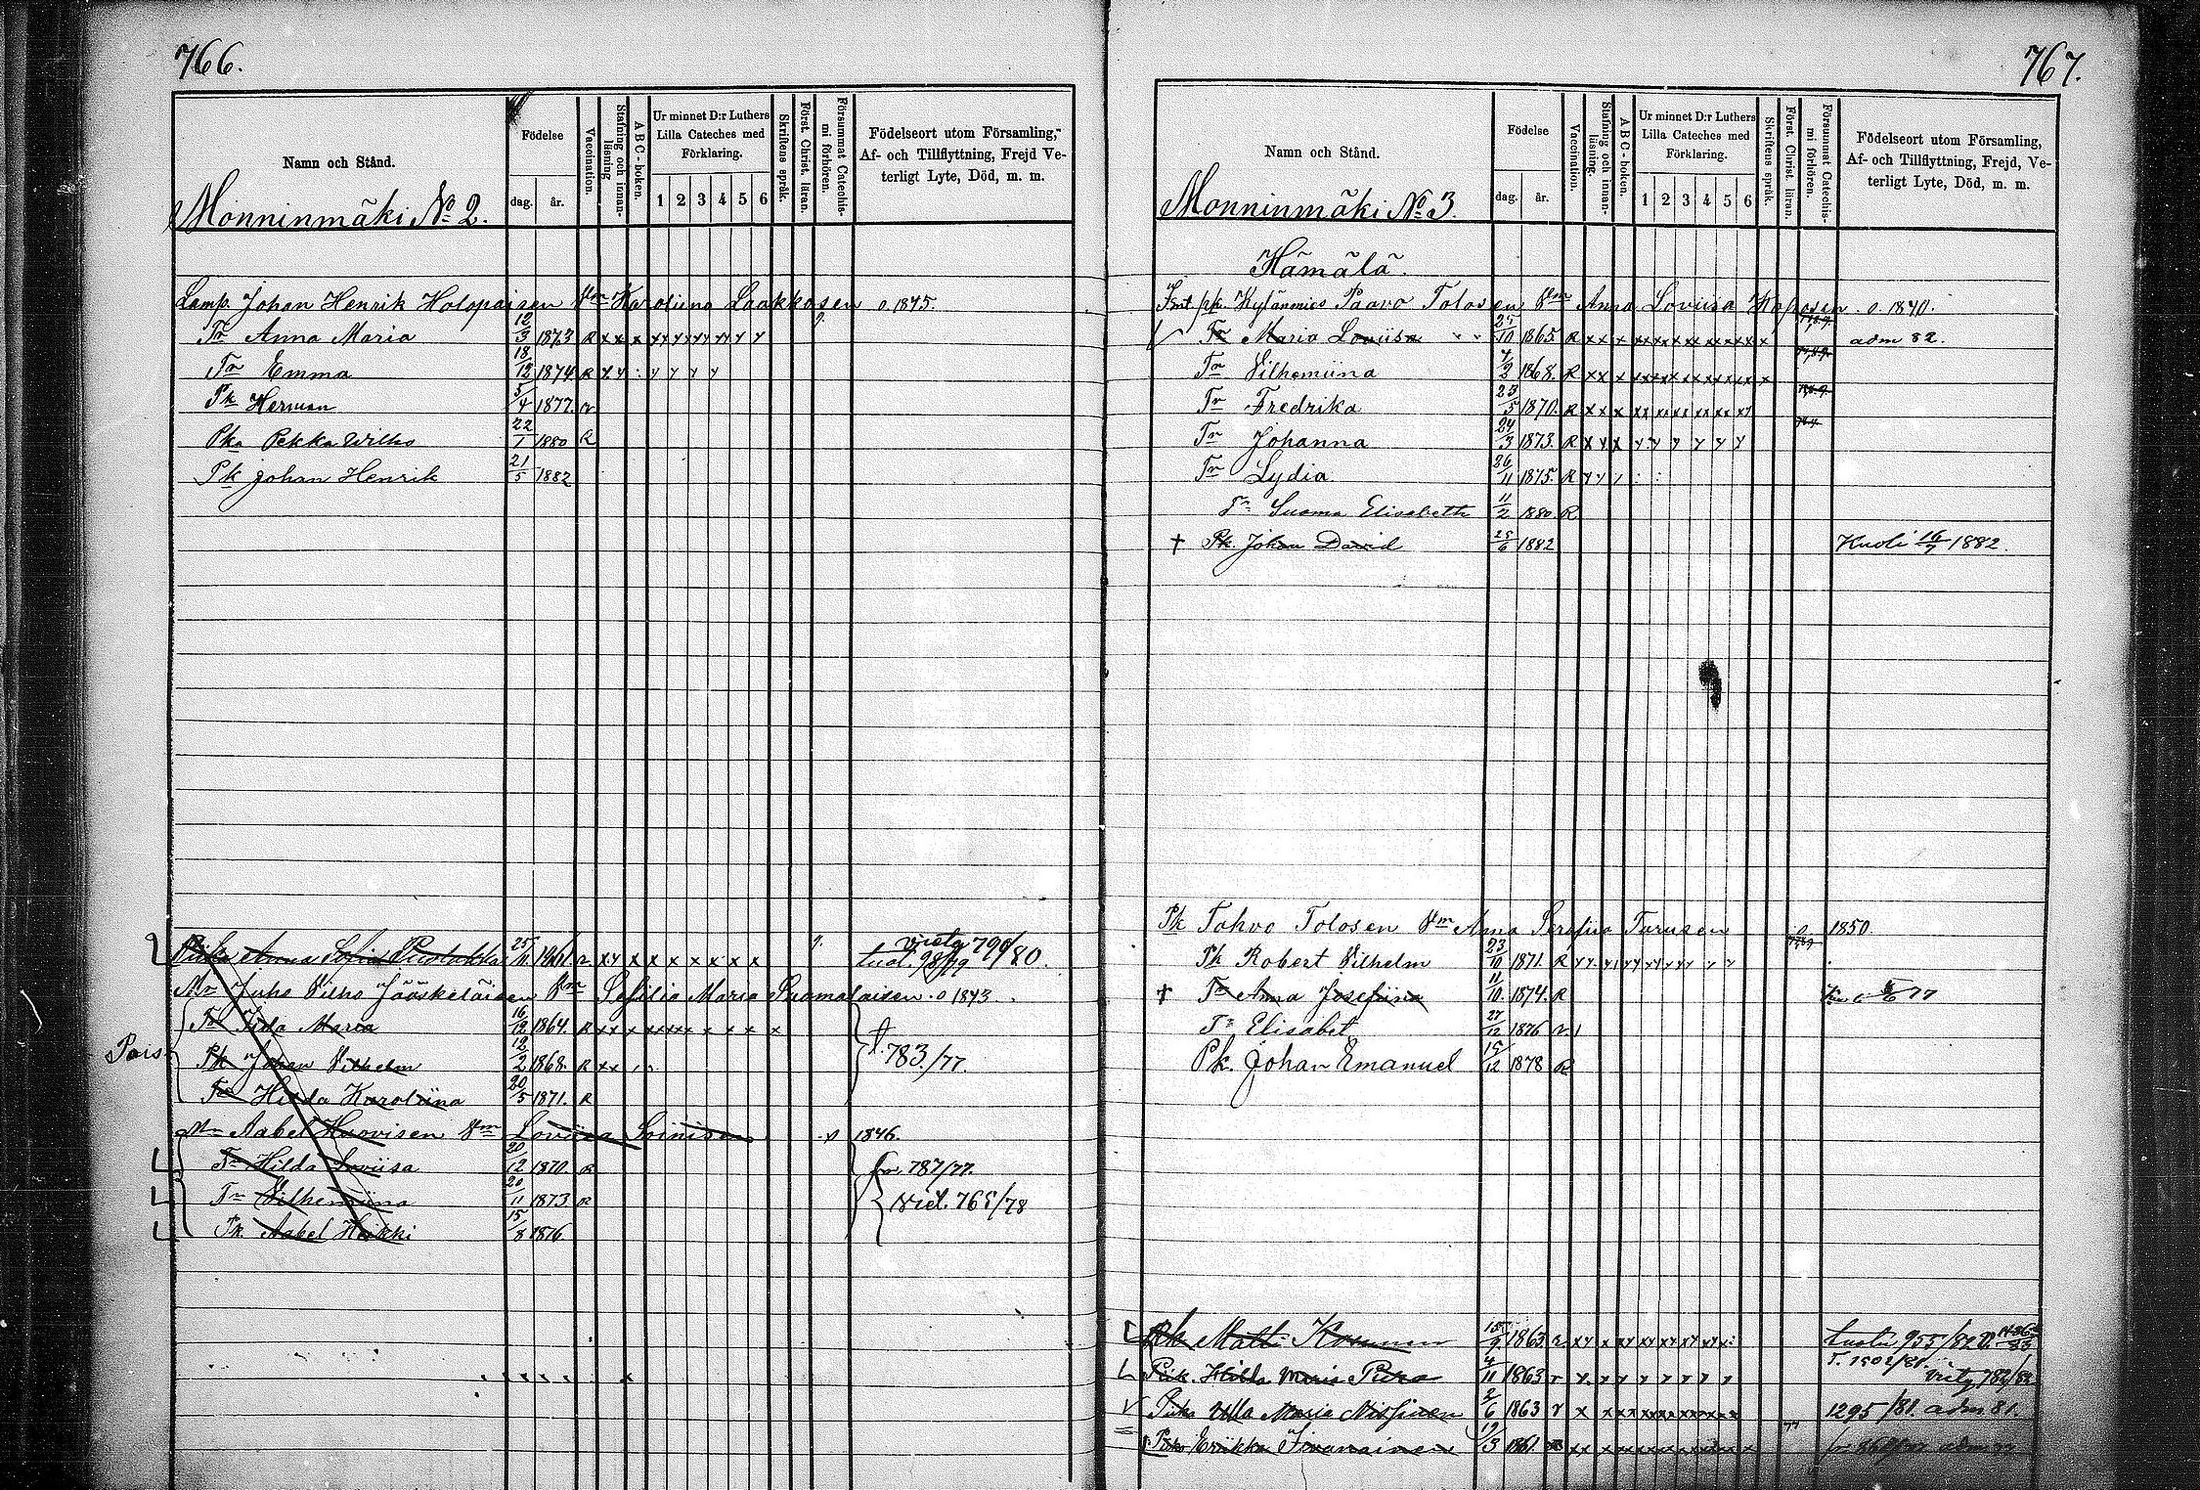 766.
Namn och Stånd.
Monninmäki No 2.
Födelse
dag. år.
Vaccination.
Stafning och innanläsning
ABC-boken.
Ur minnet D:r Luthers Lilla Cateches med Förklaring.
1 2 3 4 5 6
Skriftens språk.
Först. Christ. läran.
Försummat Catechismi förhören.
Födelseort utom Församling, Af- och Tillflyttning, Frejd Veterligt Lyte, Död, m. m.
Lamp. Johan Henrik Holopaisen Vm Karoliina Laakkosen o. 1845.
Tr Anna Maria 12/3 1873 R
Tr Emma 18/12 1874 R
Pk Herman 5/4 1877. r
Pka Pekka Wilho 22/1 1880 R
Pk Johan Henrik 21/5 1882
Piika Anna Sofia 25/11 1861. r. 98/79 799/80.
Mn Juho Vilho Jääskeläisen Vm Sesilia Maria Suomalaisen o 1843.
Tr Iida Maria 16/12 1864. R
Pois
Pk Johan Vilhelm 12/2 1868. R 783./77.
Tr Hilda Karoliina 20/5 1871. R
Mn Aabel Huovisen Vm Loviisa Soinisen 1846.
Tr Hilda Loviisa 20/12 1870. R 787/77.
Tr Vilhemiina 20/11 1873 R Vid. 765/78
Pk Aabel Heikki 15/8 1876.
767.
Namn och Stånd.
Monninmäki No 3.
Födelse
dag. år.
Vaccination.
Stafning och innanläsning.
ABC-boken.
Ur minnet D:r Luthers Lilla Cateches med Förklaring.
1 2 3 4 5 6
Skriftens språk.
Först. Christ. läran.
Försummat Catechismi förhören.
Födelseort utom Församling, Af- och Tillflyttning, Frejd, Veterligt Lyte, Död, m. m.
Hämälä.
Kylänmies Paavo Tolosen Vm Anna Loviisa Kaposen o. 1840.
Tr Maria Loviisa 25/10 1865. R adm 82.
Tr Vilhemiina 4/2 1868. R
Tr Fredrika 23/5 1870. R
Tr Johanna 24/3 1873. R
Tr Lydia 26/11 1875. R
Tr Suoma Elisabeth 11/2 1880 R
† Pk. Johan David 25/6 1882 Kuoli 16/7 1882.
Pk Tahvo Tolosen Vm Anna Serafiia Turusen o 1850
Pk Robert Vilhelm 23/10 1871. R
† Tr Anna Josefiina 11/10. 1874. R 77
Tr Elisabet 27/12 1876 r
Pk. Johan Emanuel 15/12 1878 R
Pk Matti Kosunen 15/9 1863. r. 955/82
Piik. Hilda Maria Piira 4/11 1863 r T. 1502/81. 782/82
Piika Ulla Maria Nissinen 2/6 1863 r 1295/81. adm. 81.
Piika Eriikka 19/3 1861. adm 77